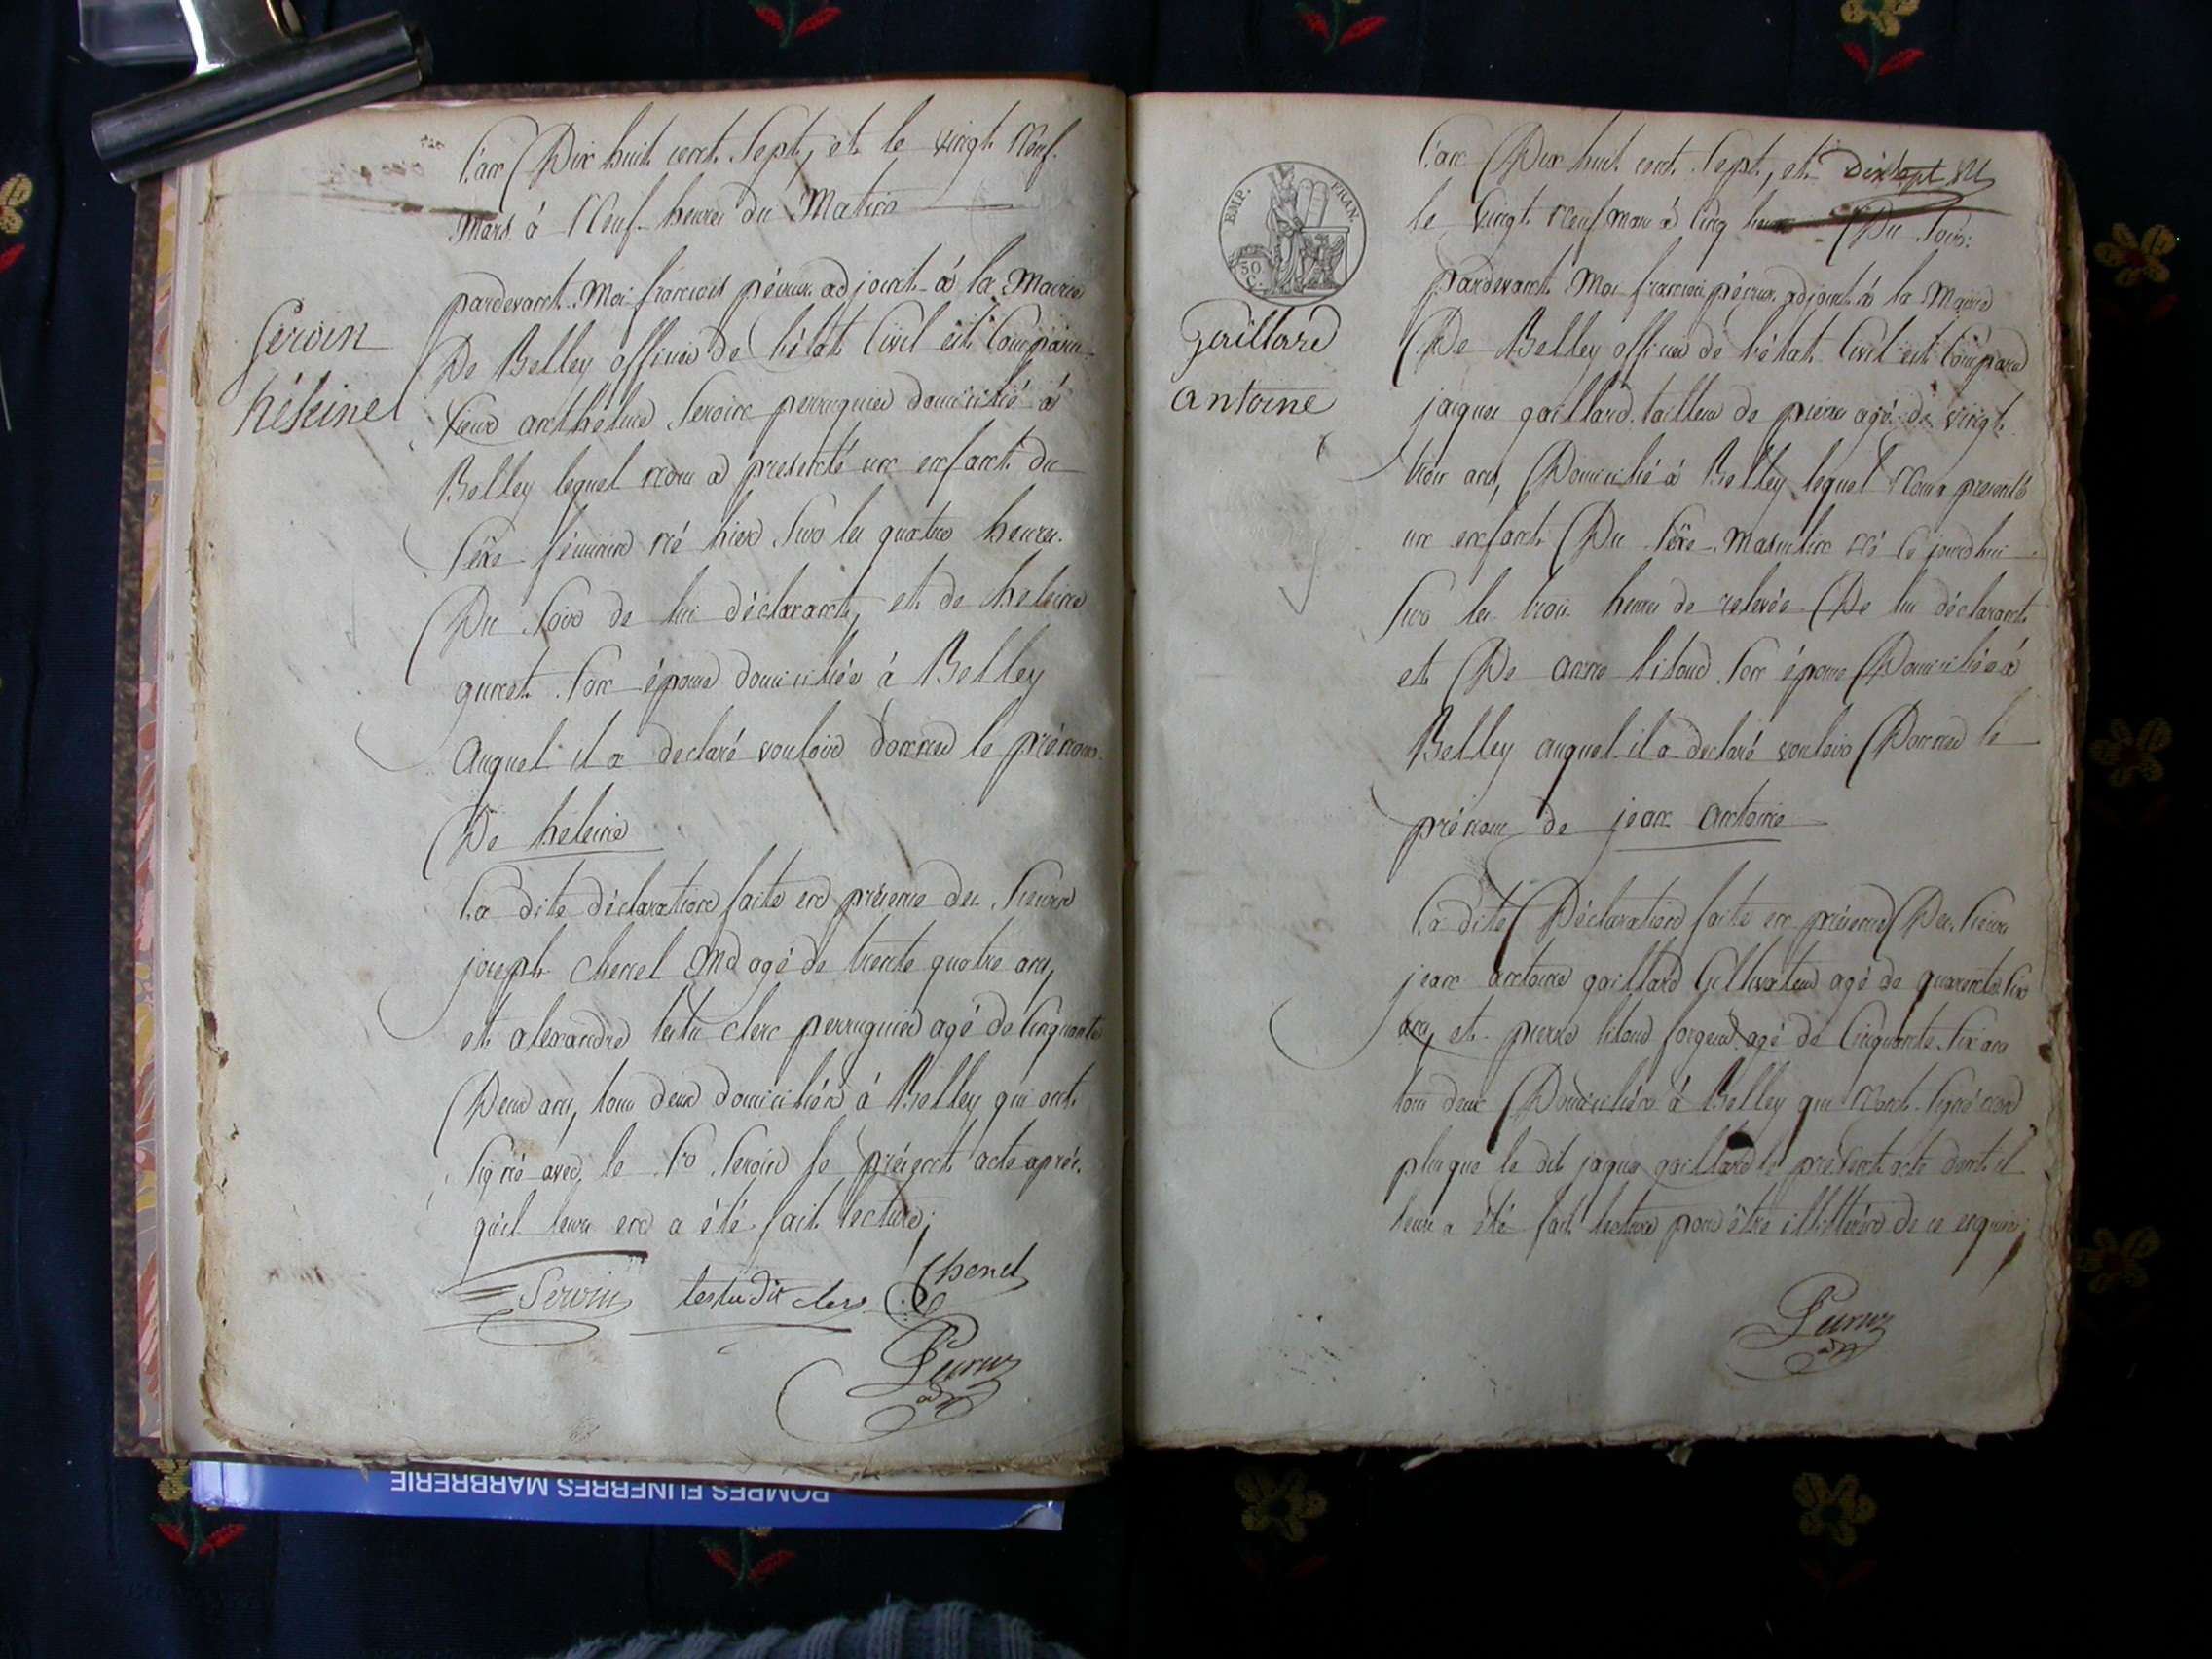 L'an Dix huit cent Sept, et le vingt Neuf
Mars à Neuf heures du Matin
pardevant Moi francois péruse adjoint à la Mairie
De Belley officier de l'état Civil est Comparu
Sieur anthelme Servin perruquier domicilié à
Belley lequel nous a presenté un enfant du
Sexe féminin né hier sur les quatre heures
Du Soir de lui déclarant, et de heleine
Son épouse domiciliée à Belley
Auquel il a declaré vouloir donner le prénom
De héleine
La dite déclaration faite en présence des Sieurs
joseph Chenel Md agé de trente quatre ans,
et alexandre testu clerc perruquier agé de Cinquante
Deux ans, tous deux domiciliés à Belley qui ont
Signé avec le Sr Servin le présent acte après
qu'il leur en a été fait lecture;
Servin testu dit clerc Chenel
Servin
héleine
EMP. FRAN.
50
C.
Gaillard
antoine
L'an Dix huit cent Sept, et Dixsept
le Vingt Neuf mars à Cinq heures Du Soir:
pardevant Moi francois péruse adjoint à la Mairie
De Belley officier de l'état Civil est Comparu
jacques gaillard tailleur de pierre agé de vingt
trois ans, Domicilié à Belley lequel Nous a presenté
un enfant Du Sexe Masculin né ce jourdhui
Sur les trois heures de relevée De lui déclarant
et De anne Son épouse Domiciliée à
Belley auquel il a declaré vouloir Donner le
prénom de jean antoine
La dite Déclaration faite en présence Des Sieurs
jean antoine gaillard Cultivateur agé de quarante Six
ans, et pierre agé de Cinquante Six ans
tous deux Domiciliés à Belley qui N'ont Signé non
plus que le dit jaques gaillard le present acte dont il
leur a été fait lecture pour être illitérés de ce enquis;
POMPES FUNEBRES MARBRERIE